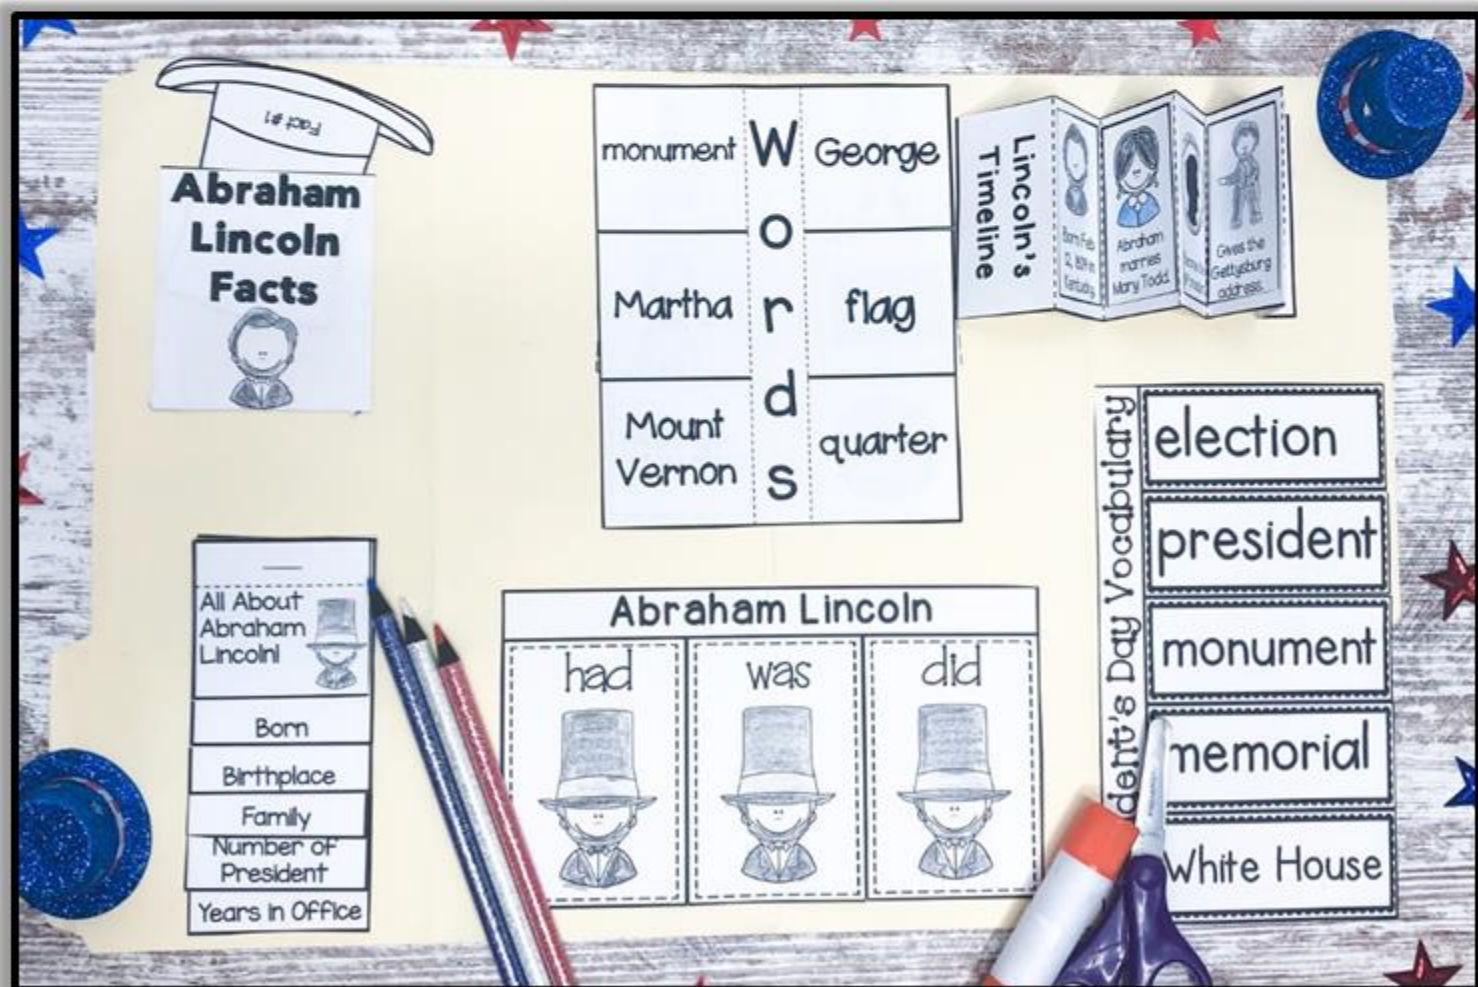 Fact #1
Abraham
Lincoln
Facts
monument
George
Martha
flag
Mount
Vernon
quarter
Words
Lincoln's
Timeline
Born Feb
12, 1809 in
Kentucky.
Abraham
marries
Mary Todd.
Gives the
Gettysburg
address.
All About
Abraham
Lincoln!
Born
Birthplace
Family
Number of
President
Years in Office
Abraham Lincoln
had
was
did
dent's Day Vocabulary
election
president
monument
memorial
White House